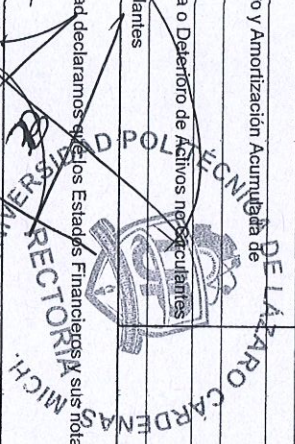 o y Amortización Acumulada de
a o Deterioro de Activos no Circulantes
lantes
ad declaramos que los Estados Financieros y sus nota
UNIVERSIDAD POLITÉCNICA DE LÁZARO CÁRDENAS MICH.
RECTORIA